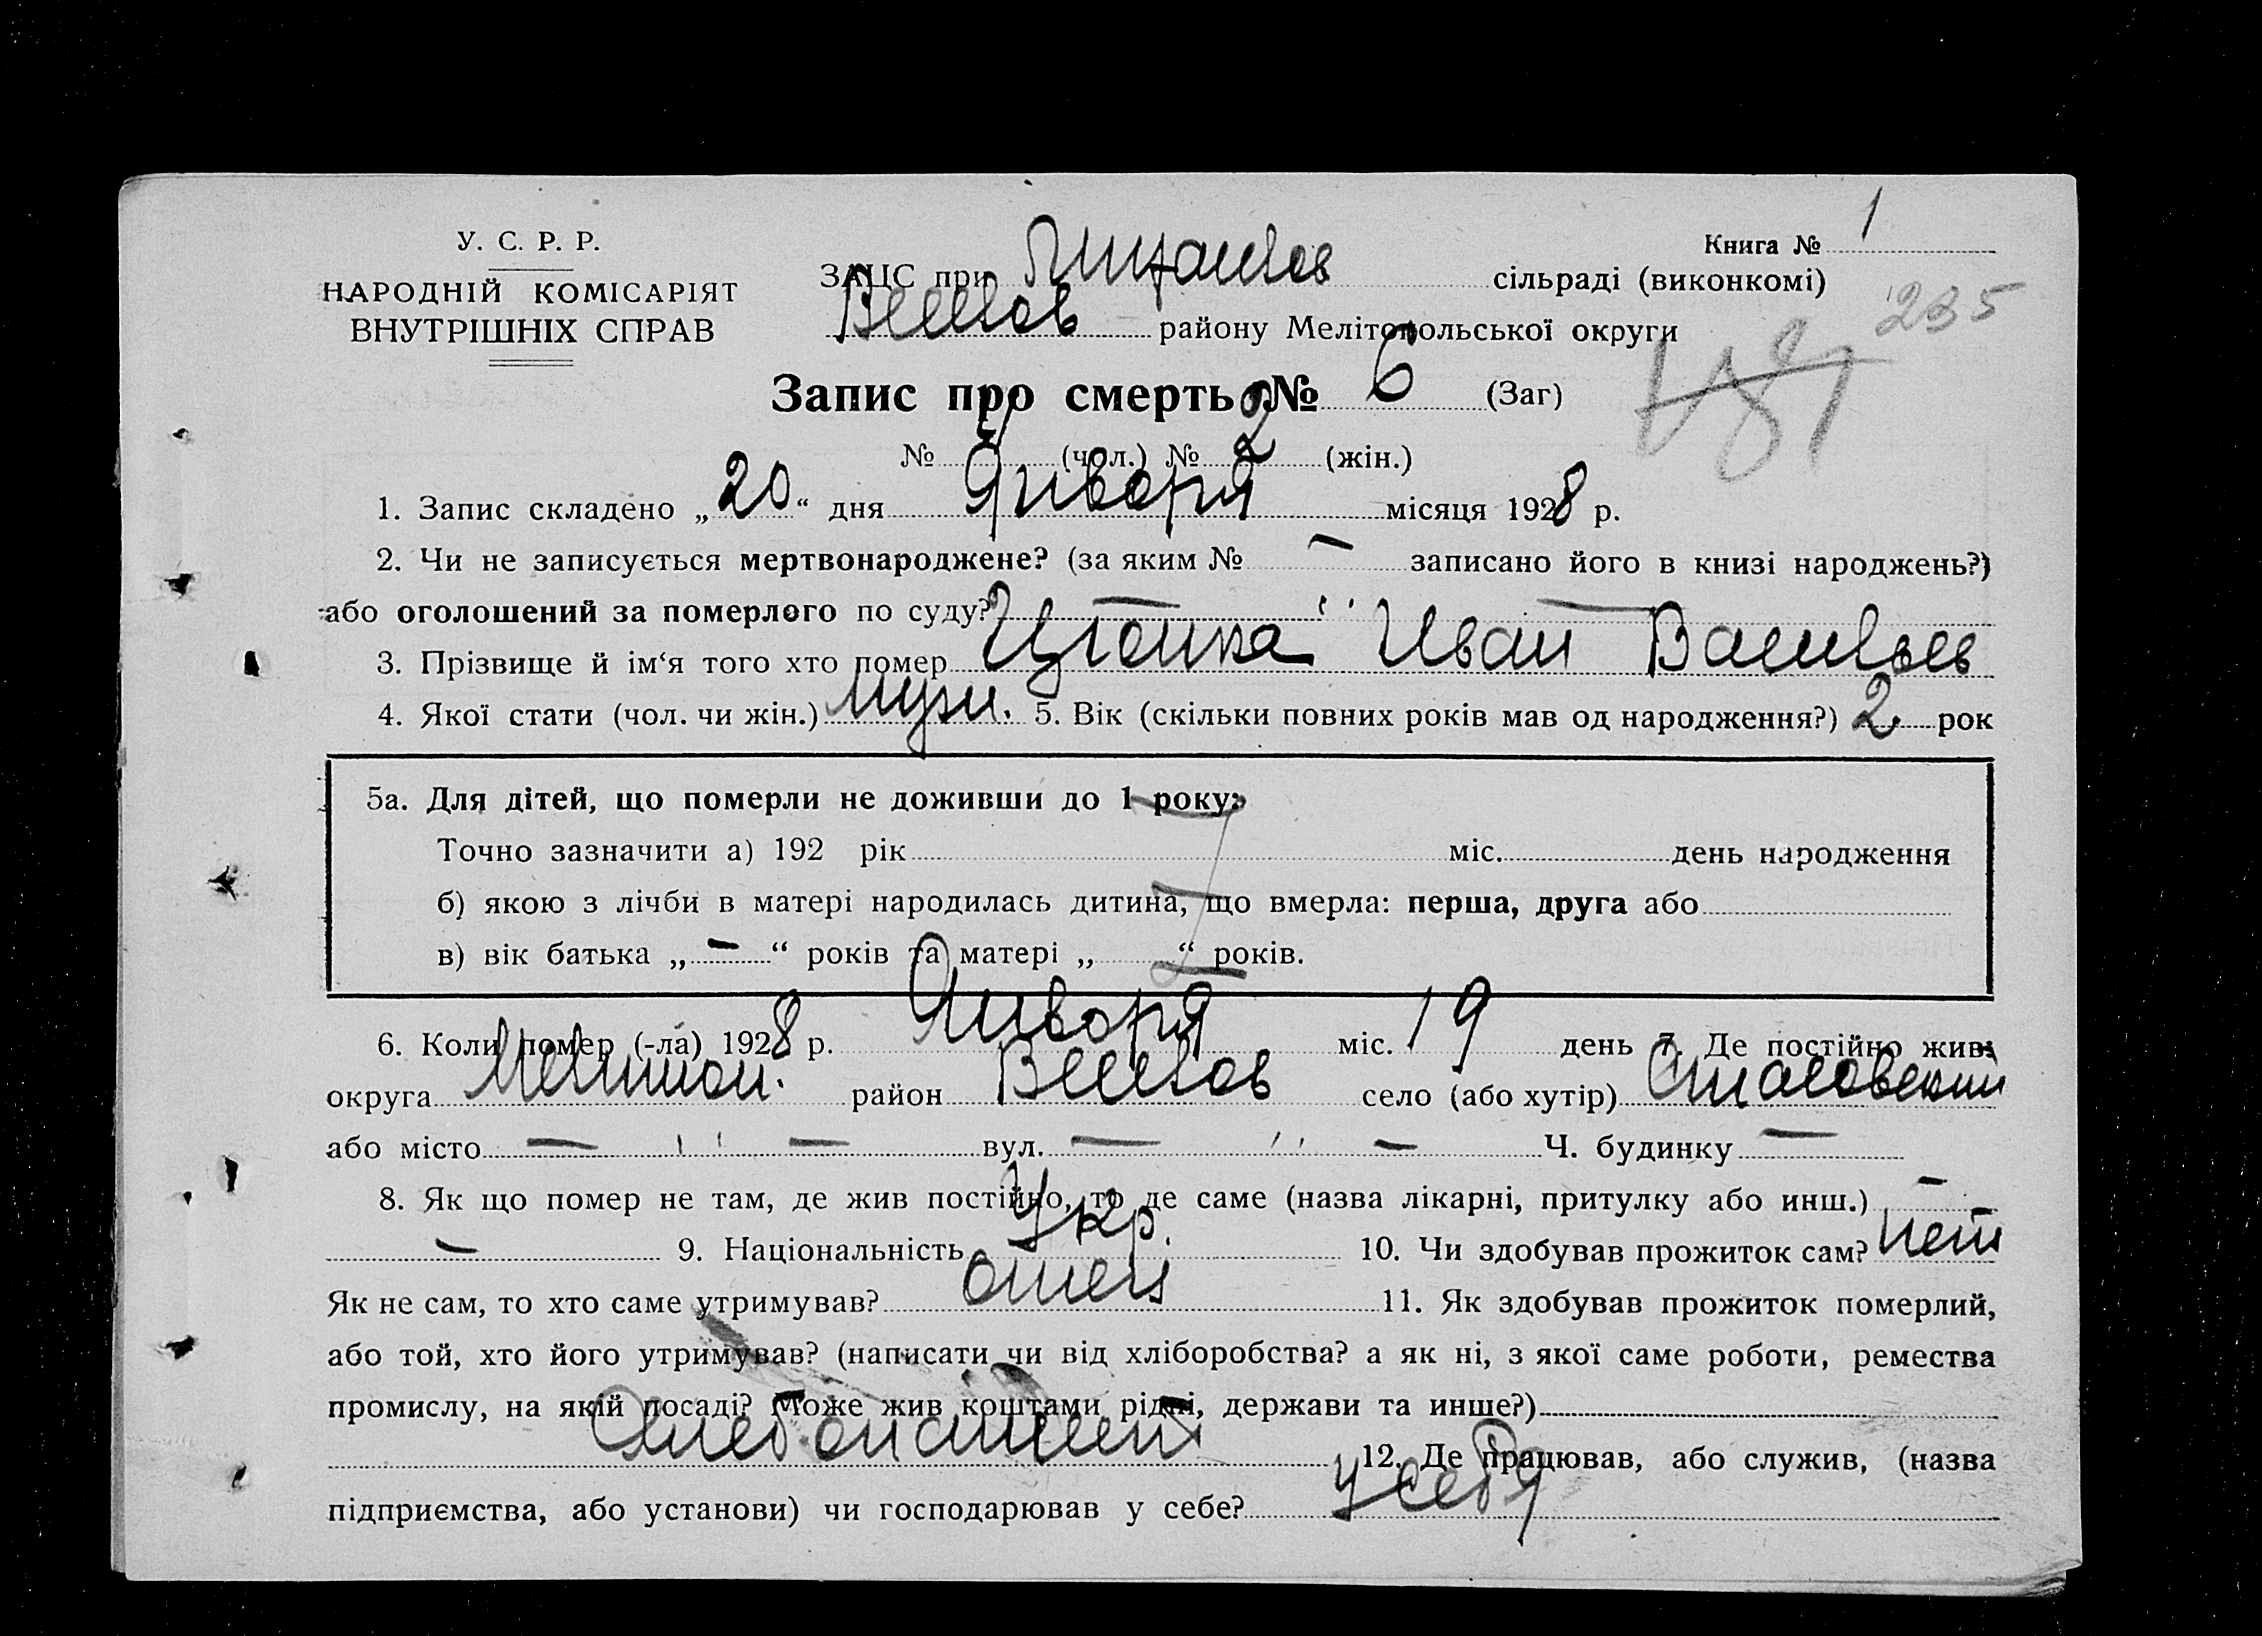 У. С. Р. Р.
НАРОДНІЙ КОМІСАРІЯТ
ВНУТРІШНІХ СПРАВ
Книга № 1
235
ЗАЦС при сільраді (виконкомі)
району Мелітопольської округи
Запис про смерть № 6 (Заг)
№ 4 (чол.) № 2 (жін.)
1. Запис складено „20“ дня Января місяця 1928 р.
2. Чи не записується мертвонароджене? (за яким № — записано його в книзі народжень?)
або оголошений за померлого по суду? —
3. Прізвище й ім‘я того хто помер Иван Васильев
4. Якої стати (чол. чи жін.) муж. 5. Вік (скільки повних років мав од народження?) 2. рок
5а. Для дітей, що померли не доживши до 1 року:
Точно зазначити а) 192 рік міс. день народження
б) якою з лічби в матері народилась дитина, що вмерла: перша, друга або
в) вік батька „—“ років та матері „ “ років.
6. Коли помер (-ла) 1928 р. Января міс. 19 день 7. Де постійно жив:
округа Мелитоп. район село (або хутір)
або місто — " — вул. — " — Ч. будинку —
8. Як що помер не там, де жив постійно, то де саме (назва лікарні, притулку або инш.) —
— 9. Національність Укр. 10. Чи здобував прожиток сам? нет
Як не сам, то хто саме утримував? отец 11. Як здобував прожиток померлий,
або той, хто його утримував? (написати чи від хліборобства? а як ні, з якої саме роботи, ремества
промислу, на якій посаді? Може жив коштами рідні, держави та инше?)
12. Де працював, або служив, (назва
підприємства, або установи) чи господарював у себе? у себя